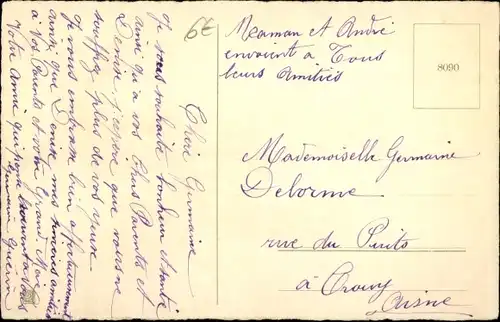 Chère Germaine
Je vous souhaite bonheur et santé
ainsi qu'à vos Chers Parents et
Denise j'espère que vous ne
souffrez plus de vos
Je vous embrasse bien affectueusement
ainsi que Denise mes sincères amitiés
à vos Parents et votre Grand-Mère
Votre Amie qui pense souvent à vous
Germaine
6€
Maman et André
envoient à Tous
leurs Amitiés
8090
Mademoiselle Germaine
Delorme
rue du Puits
à Crouy
Aisne